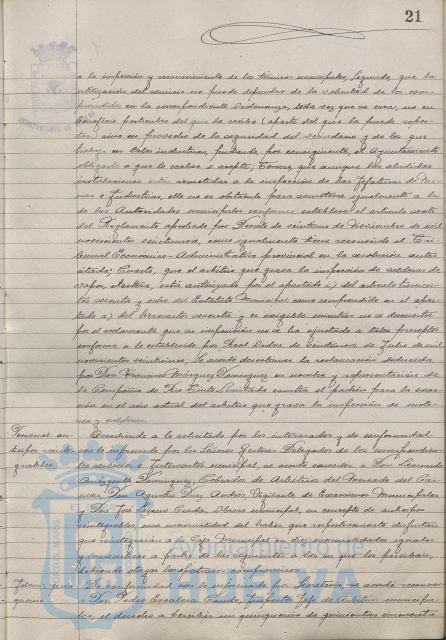 21
a la inspección y reconocimiento de los técnicos municipales; Segundo, que la
utilización del servicio no puede depender de la voluntad de los com-
prendidos en la correspondiente Ordenanza, toda vez que se crea, no en
beneficio particular del que la recibe (aparte del que la puede repor-
tar) sino en provecho de la seguridad del vecindario y de los que
trabajan en tales industrias, pudiendo, por consiguiente, el Ayuntamiento
obligarle a que lo realice o acepte; Tercero, que aunque las aludidas
instalaciones estén sometidas a la inspección de las Jefaturas de Mi-
nas e Industrias, ello no es obstáculo para someterse igualmente a la
de las Autoridades municipales conforme establece el artículo
del Reglamento aprobado por Decreto de de Noviembre de mil
novecientos como igualmente tiene reconocido el Tri-
bunal Económico-Administrativo provincial en la resolución antes
citada; Cuarto, que el arbitrio que grava la inspección de calderas de
vapor, está autorizado por el apartado del artículo trescien-
tos sesenta y ocho del Estatuto Municipal como comprendido en el apar-
tado a) del trescientos sesenta y es exigible mientras no se demuestre
por el reclamante que su imposición no se ha ajustado a tales preceptos
conforme a lo establecido por Real Orden de de Julio de mil
novecientos Se acordó desestimar la reclamación deducida
por Don Francisco Márquez Domínguez en nombre y representación de
la Compañía de Rio Tinto Limitada contra el padrón para la exac-
ción en el año actual del arbitrio que grava la inspección de moto-
res y calderas.
Personal an-
ticipos reinte-
grables.
Accediendo a lo solicitado por los interesados y de conformidad
con lo informado por los Señores Gestores Delegados de los correspondien-
tes servicios e Interventor municipal, se acordó conceder a Don Leonardo
Domínguez, Cobrador de Arbitrios del Mercado del Car-
men, Don Agustín Díaz Vigilante de Municipales
y Don José Conde, Obrero municipal, en concepto de anticipo
reintegrable, una mensualidad del haber que respectivamente disfrutan
que reintegrarán a la Caja Municipal en diez mensualidades iguales
y consecutivas a partir de la siguiente a la en que la perciban,
debiendo otorgar los oportunos compromisos.
Idem quin-
quenio
De conformidad con lo informado por Secretaría, se acordó recono-
cer a Don Pedro Escalera Conde, Inspector Jefe de Arbitrios municipa-
les, el derecho a percibir un quinquenio de quinientas cincuenta